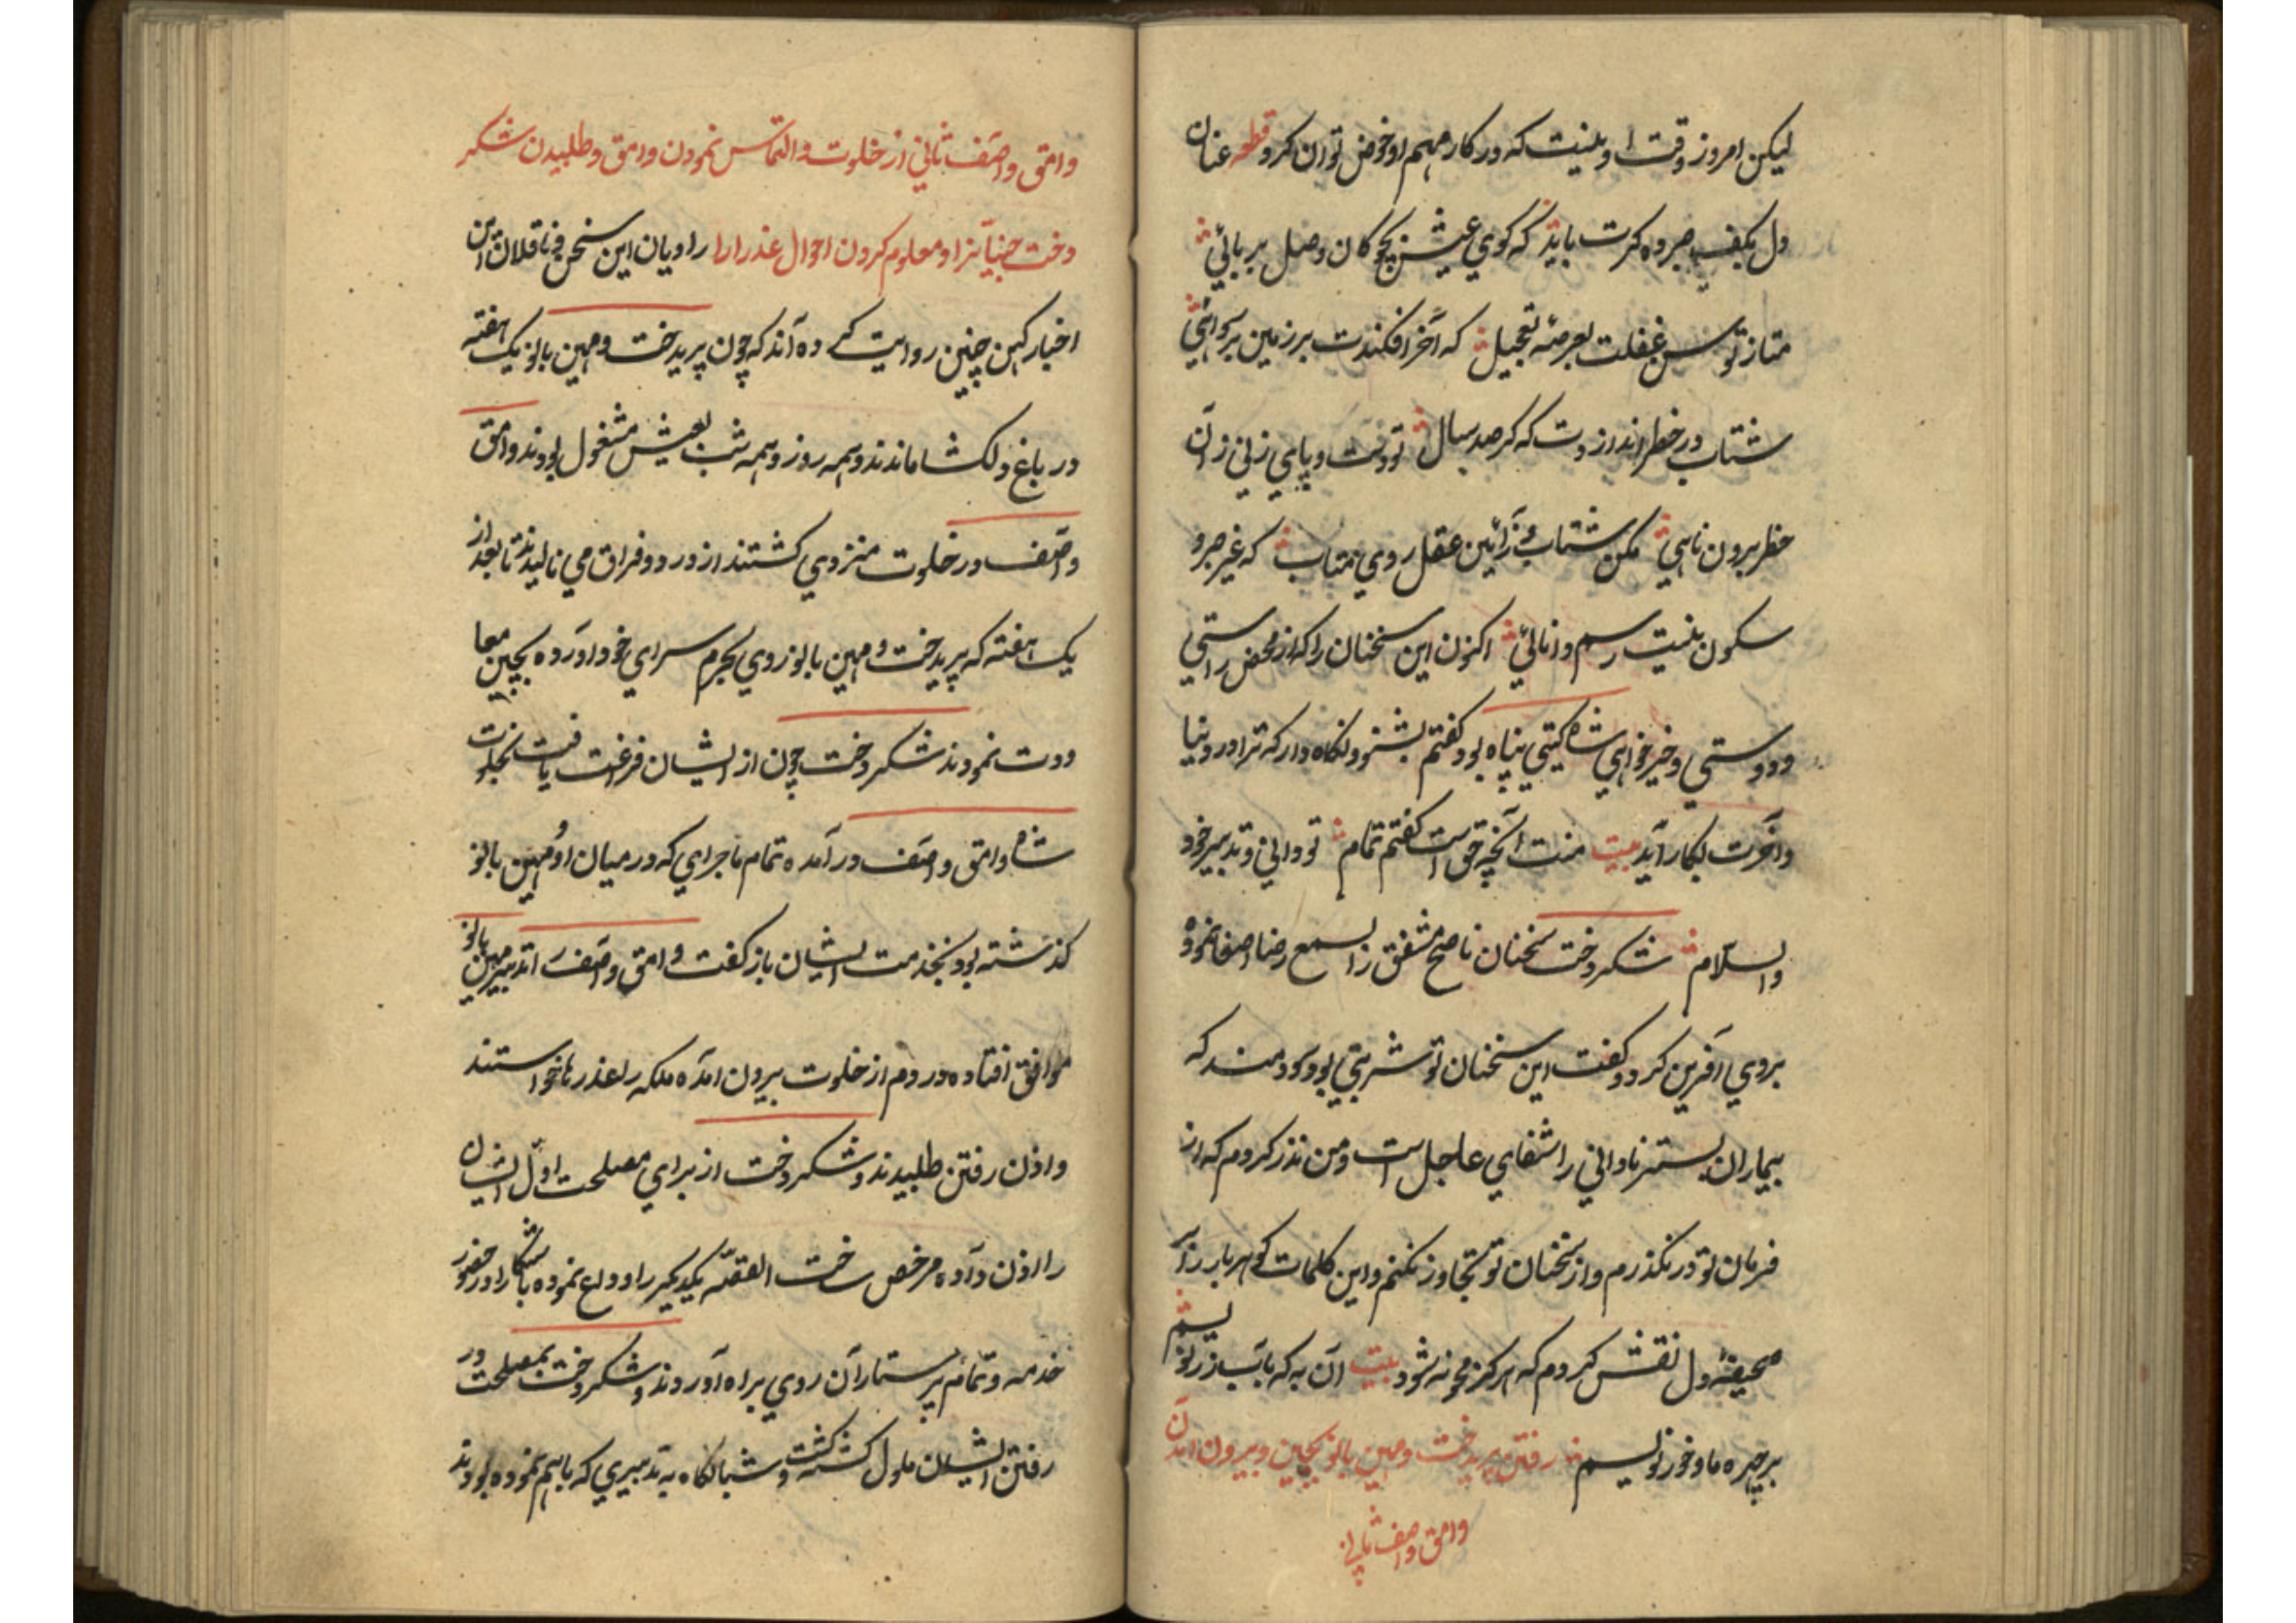 لیکن امروز وقت او نیست که در کار مهم او خوض توان کرد قطعه عنان
دل بکف صبر ده کرت باید که کوی عیش بچوکان وصل بربائی
متاز توسن غفلت بعرصه تعجیل که آخر افکندت بر زمین برسوائی
شتاب در خطر اندازدت که کر صد سال تو دست و پای زنی زان
خطر برون نائی مکن شتاب و ز آئین عقل روی متاب که غیر صبر و
سکون نیست رسم دانائی اکنون این سخنان را که از محض راستی
و دوستی و خیرخواهی شاه کیتی پناه بود کفتم بشنو و نکاه دار که ترا در دنیا
و آخرت بکار آید بیت منت آنچه حق است کفتم تمام تو دانی و تدبیر خود
والسلام شکردخت سخنان ناصح مشفق را بسمع رضا اصغا نموده
بروی آفرین کرد و کفت این سخنان تو شربتی بود سودمند که
بیماران بستر نادانی را شفای عاجل است و من نذر کردم که از
فرمان تو در نکذرم و از سخنان تو تجاوز نکنم و این کلمات کوهربار را بر
صحیفه دل نقش کردم که هرکز محو نشود بیت آن به که بآب زر نویسیم
بر چهره ماه و خور نویسم رفتن پریدخت و مهین بانو بچین و بیرون آمدن
وامق و آصف ثانی
وامق و آصف ثانی از خلوت و التماس نمودن وامق و طلبیدن شکر
دخت جنیان را و معلوم کردن احوال عذرا را راویان این سخن و ناقلان آن
اخبار کهن چنین روایت کرده اند که چون پریدخت و مهین بانو یک هفته
در باغ دلکشا ماندند و همه روز و همه شب بعیش مشغول بودند وامق
و آصف در خلوت منزوی کشتند از درد فراق می نالیدند تا بعد از
یک هفته که پریدخت و مهین بانو روی بحرم سرای خود آورده بچین معا
ودت نمودند شکردخت چون از ایشان فرغت یافت بخلوت
شاه وامق و آصف در آمده تمام ماجرای که در میان او و مهین بانو
کذشته بود بخدمت ایشان باز کفت وامق و آصف را تدبیر مهین بانو
موافق افتاده در دم از خلوت بیرون آمده ملکه را عذرها خواستند
و اذن رفتن طلبیدند و شکردخت از برای مصلحت اول ایشان
را اذن داده مرخص ساخت القصه یکدیکر را وداع نموده باشکارا در حضور
خدمه و تمام پرستاران روی براه آوردند و شکردخت بمصلحت در
رفتن ایشان ملول کشت و شبانکاه به تدبیری که باهم نموده بودند